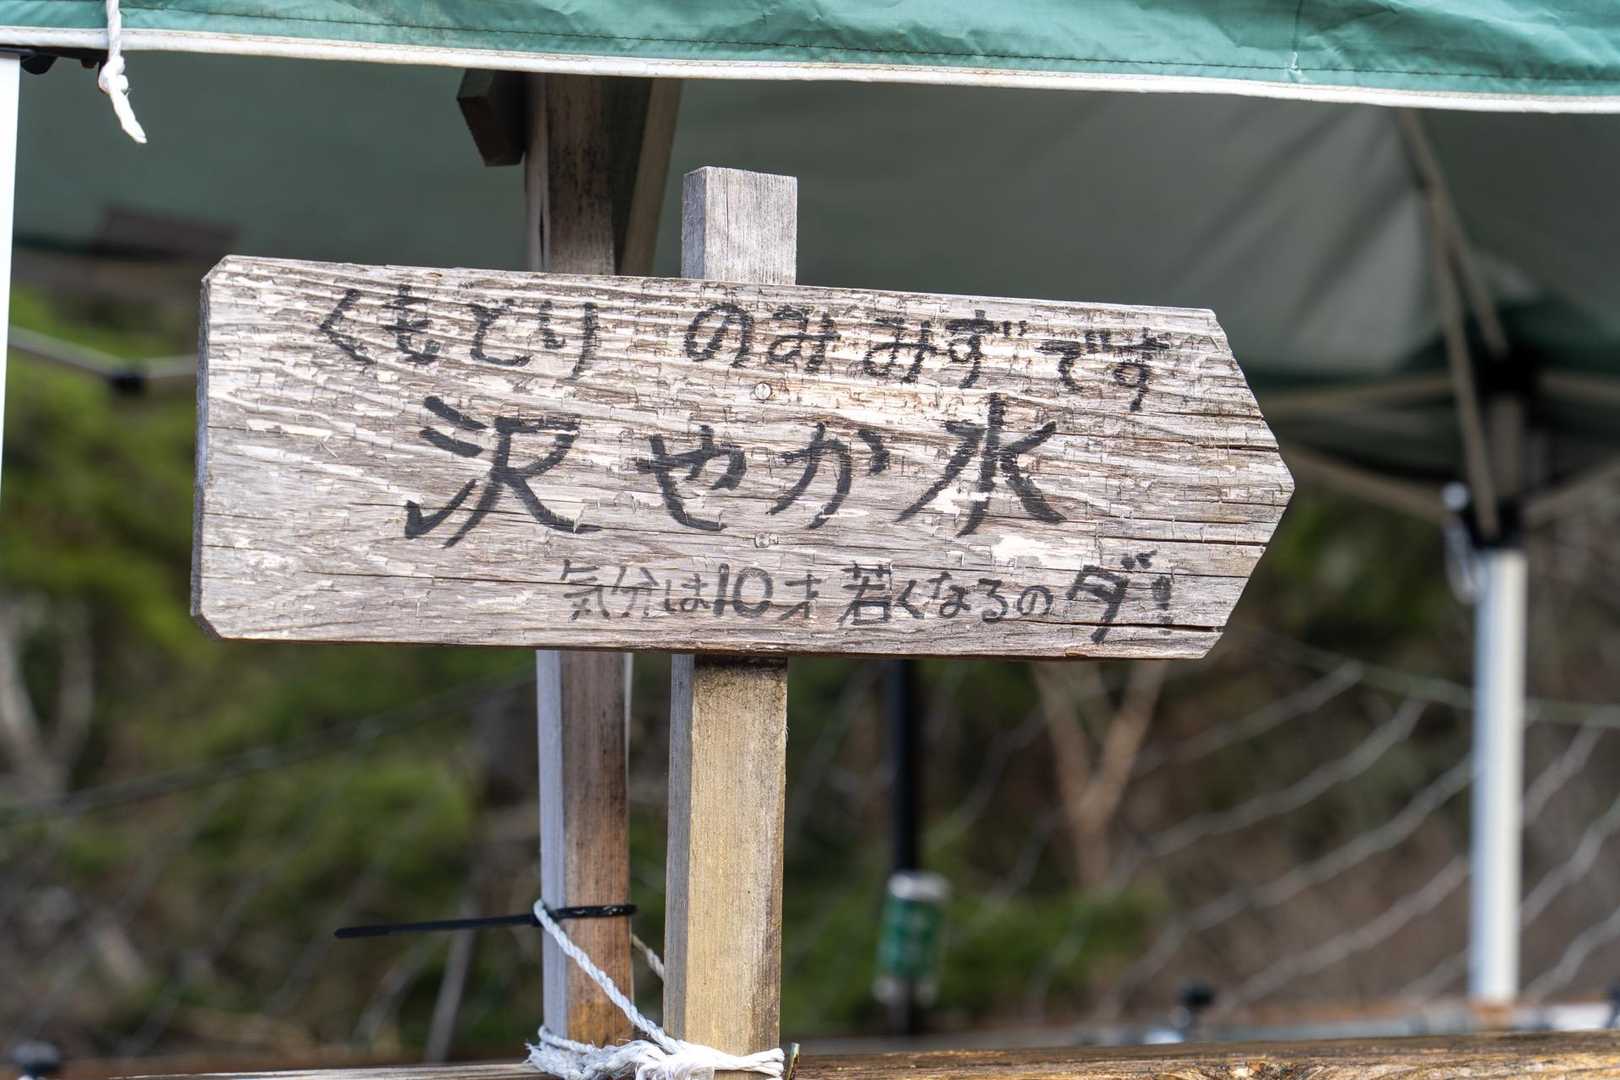 くもどり のみみずです
沢やか水
気分は10才若くなるのダ!